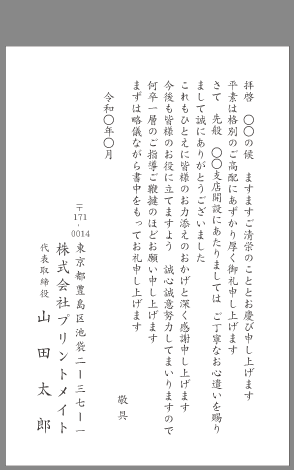 拝啓　〇〇の候　ますますご清栄のこととお慶び申し上げます
平素は格別のご高配にあずかり厚く御礼申し上げます
さて　先般　〇〇支店開設にあたりましては　ご丁寧なお心遣いを賜り
まして誠にありがとうございました
これもひとえに皆様のお力添えのおかげと深く感謝申し上げます
今後も皆様のお役に立てますよう　誠心誠意努力してまいりますので
何卒一層のご指導ご鞭撻のほどお願い申し上げます
まずは略儀ながら書中をもってお礼申し上げます
敬具
令和〇年〇月
〒171-0014
東京都豊島区池袋二ー三七ー一
株式会社プリントメイト
代表取締役　山田太郎